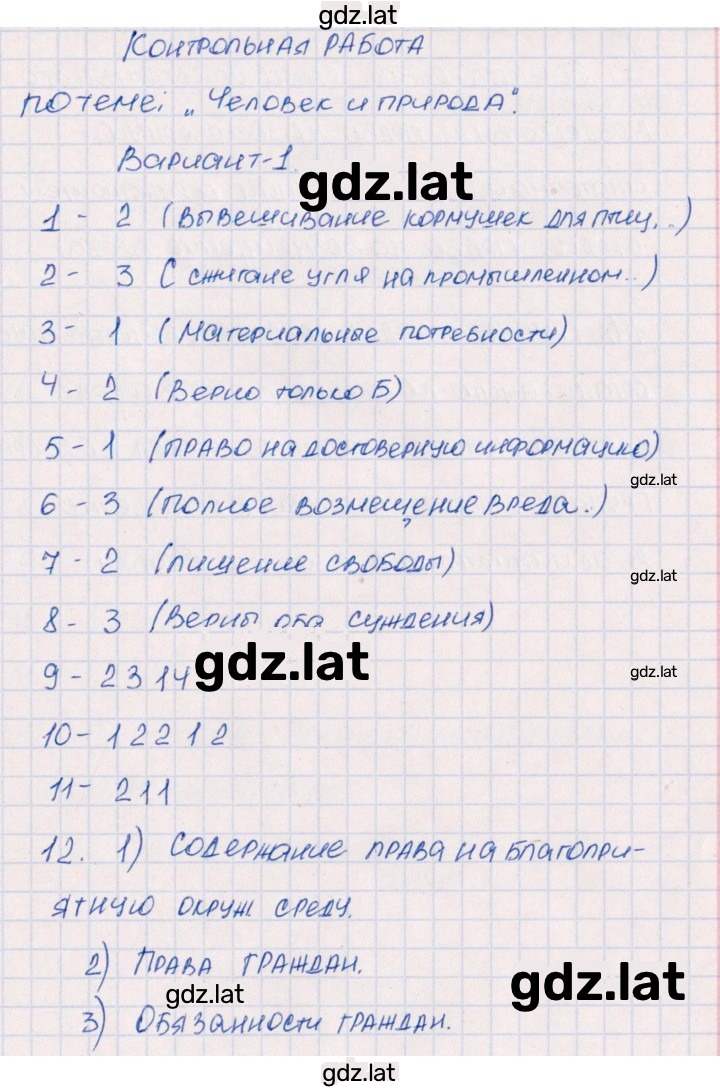 gdz.lat
Контрольная работа
по теме: „Человек и природа".
Вариант-1.
gdz.lat
1 - 2 (Вывешивание кормушек для птиц...)
2 - 3 (С сжигане угля на промышленном..)
3 - 1 (Материальные потребности)
4 - 2 (Верно только Б)
5 - 1 (право на достоверную информацию)
gdz.lat
6 - 3 (Полное возмещение вреда..)
7 - 2 (лишение свободы)
gdz.lat
8 - 3 (Верны оба суждения)
gdz.lat
9 - 2 3 1 4
gdz.lat
10 - 1 2 2 1 2
11 - 2 1 1
12. 1) Содержание права на благопри-
ятную окруж среду.
2) Права граждан.
gdz.lat
gdz.lat
3) Обязанности граждан.
gdz.lat